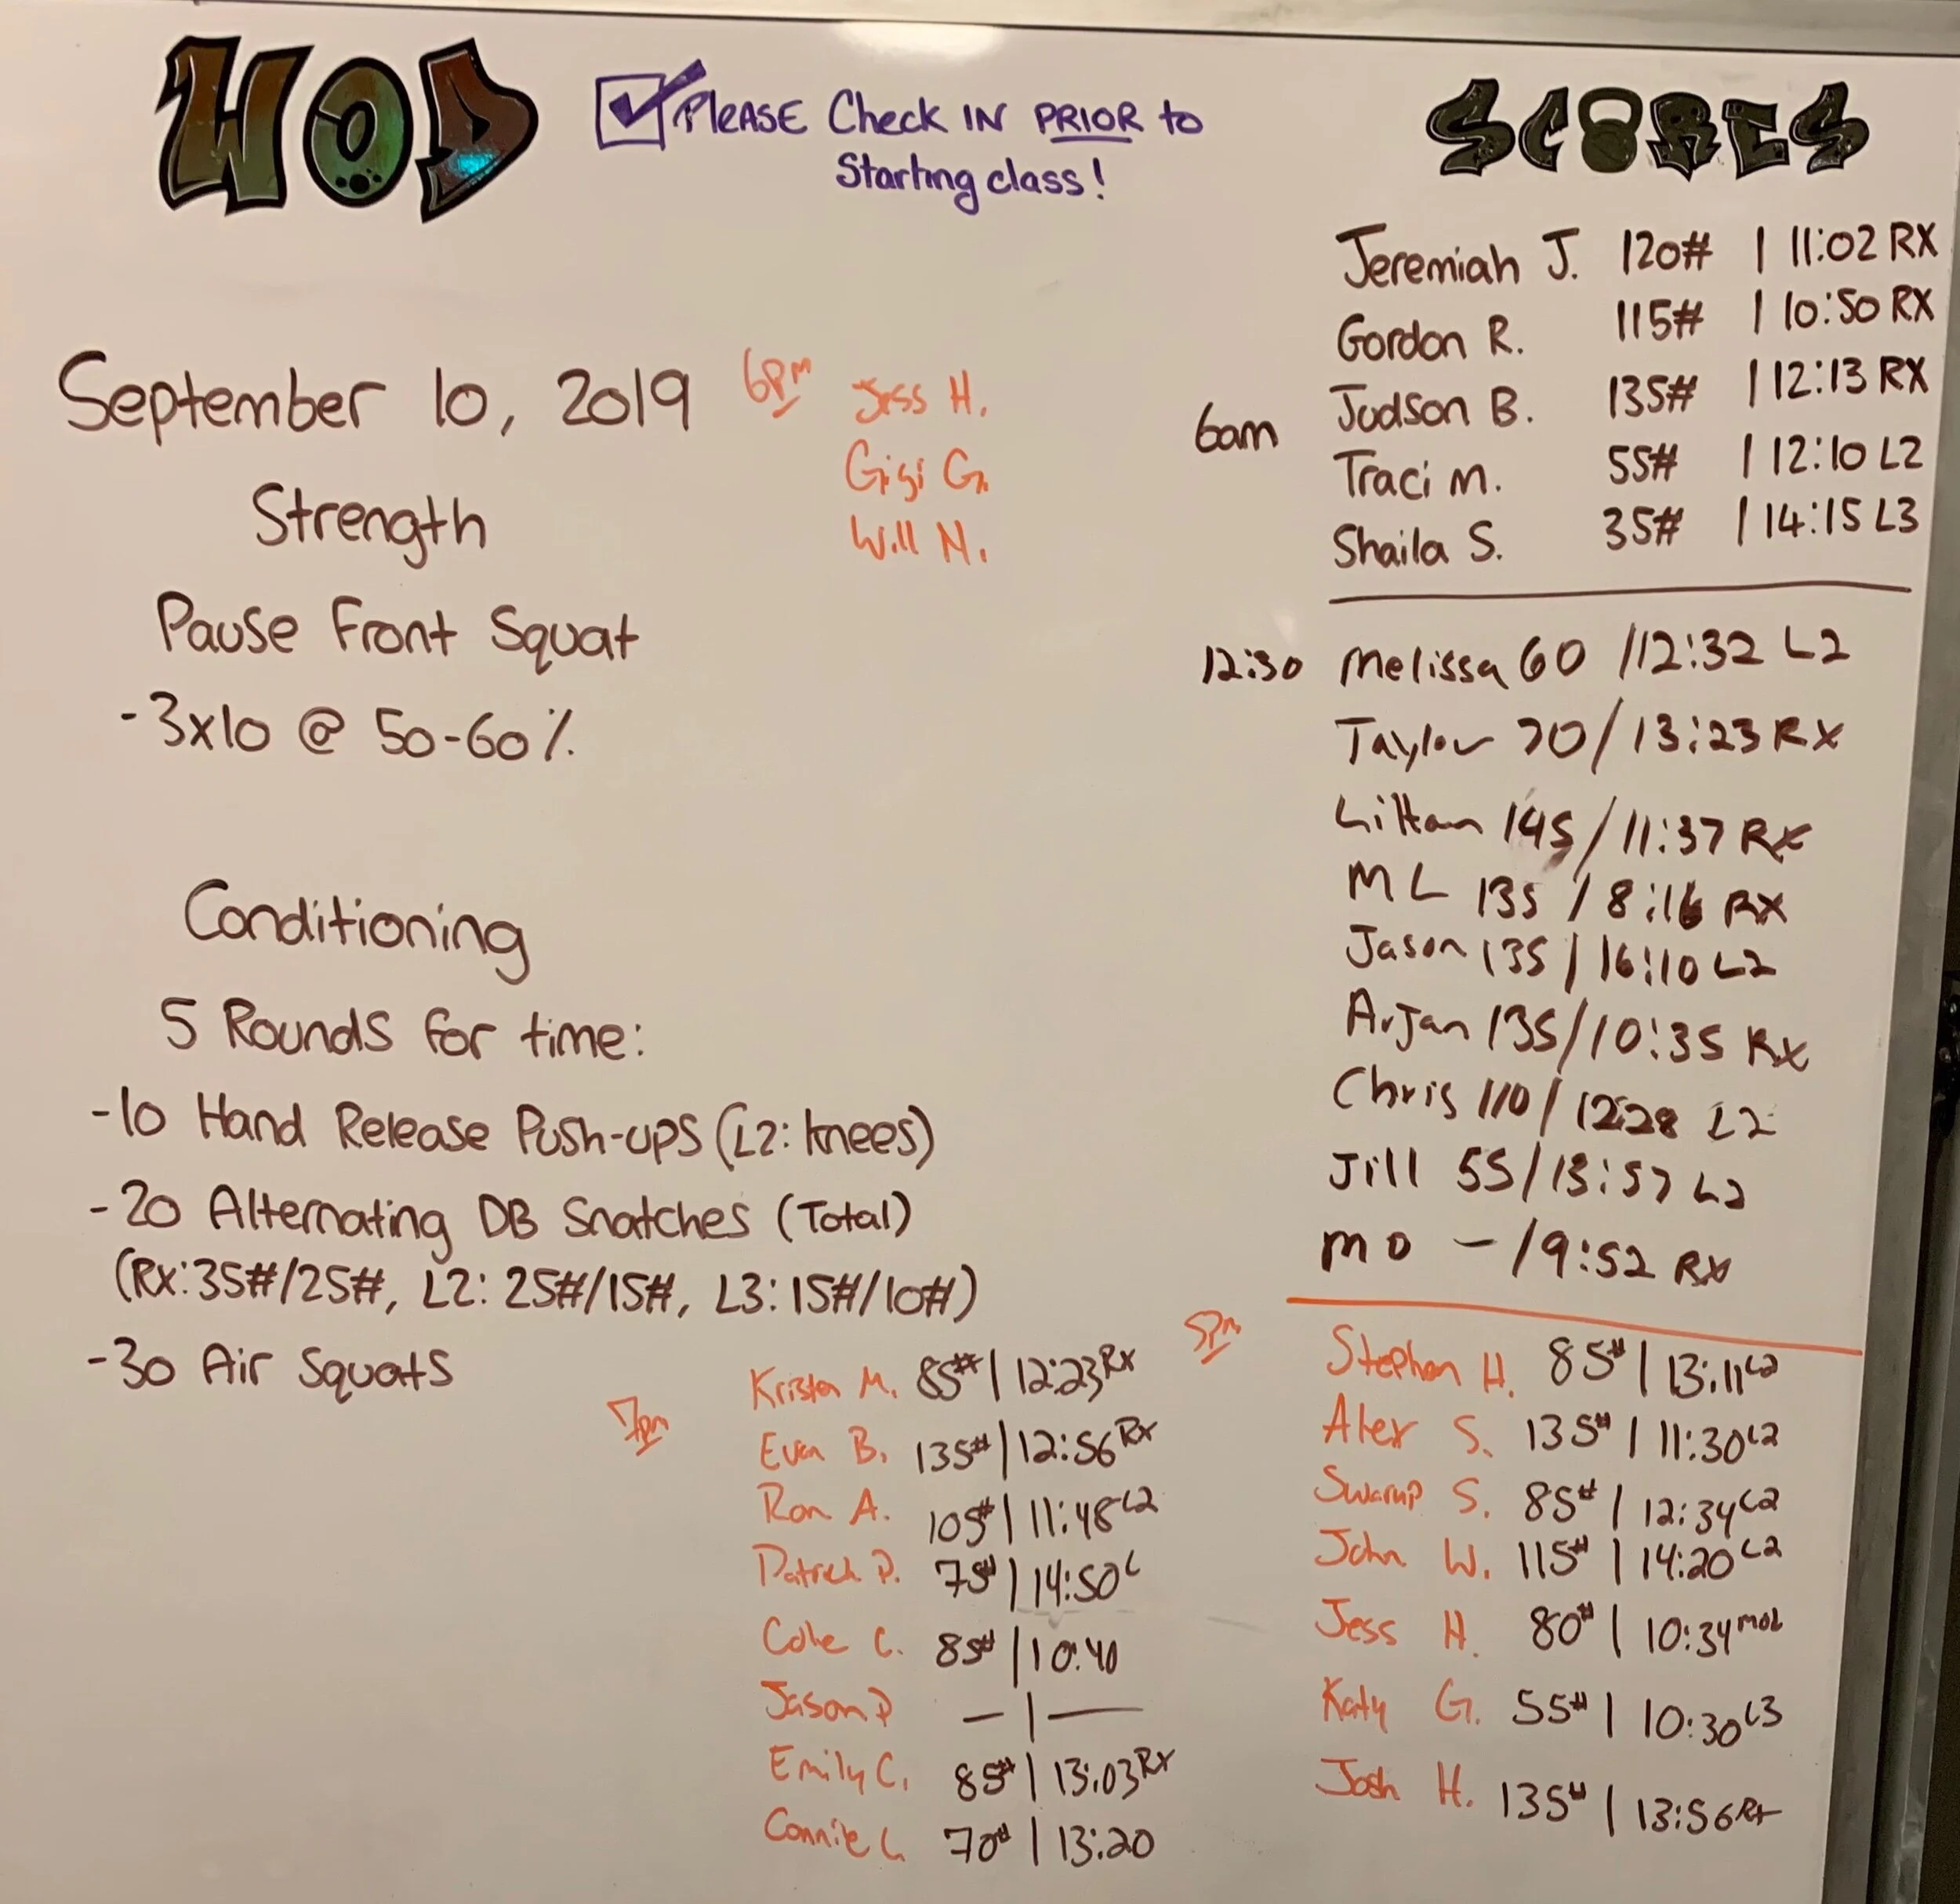 WOD
PLEASE Check IN PRIOR to
Starting class!
September 10, 2019
Strength
Pause Front Squat
-3x10 @ 50-60%
Conditioning
5 Rounds for time:
-10 Hand Release Push-ups (L2: knees)
-20 Alternating DB Snatches (Total)
(Rx: 35#/25#, L2: 25#/15#, L3: 15#/10#)
-30 Air Squats
6pm
Jess H.
Gigi G.
Will N.
SCORES
6am
Jeremiah J. 120# | 11:02 RX
Gordon R. 115# | 10:50 RX
Judson B. 135# | 12:13 RX
Traci M. 55# | 12:10 L2
Shaila S. 35# | 14:15 L3
12:30 Melissa 60 /12:32 L2
Taylor 70/13:23 RX
145/11:37 RX
ML 135 / 8:16 RX
Jason 135 | 16:10 L2
Arjan 135/10:35 Rx
Chris 110/12:28 L2
Jill 55/13:57 L2
MO - /9:52 RX
5pm
Stephen H. 85# | 13:11 L2
Alex S. 135# | 11:30 L2
Swarup S. 85# | 12:34 L2
John W. 115# | 14:20 L2
Jess H. 80# | 10:34
Katy G. 55# | 10:30 L3
Josh H. 135# | 13:56 Rx
7pm
Kristen M. 85# | 12:23 RX
Evan B. 135# | 12:56 RX
Ron A. 105# | 11:48 L2
Patrick P. 75# | 14:50 L
85# | 10:40
Jason P — | —
Emily C. 85# | 13:03 RX
Connie L. 70# | 13:20